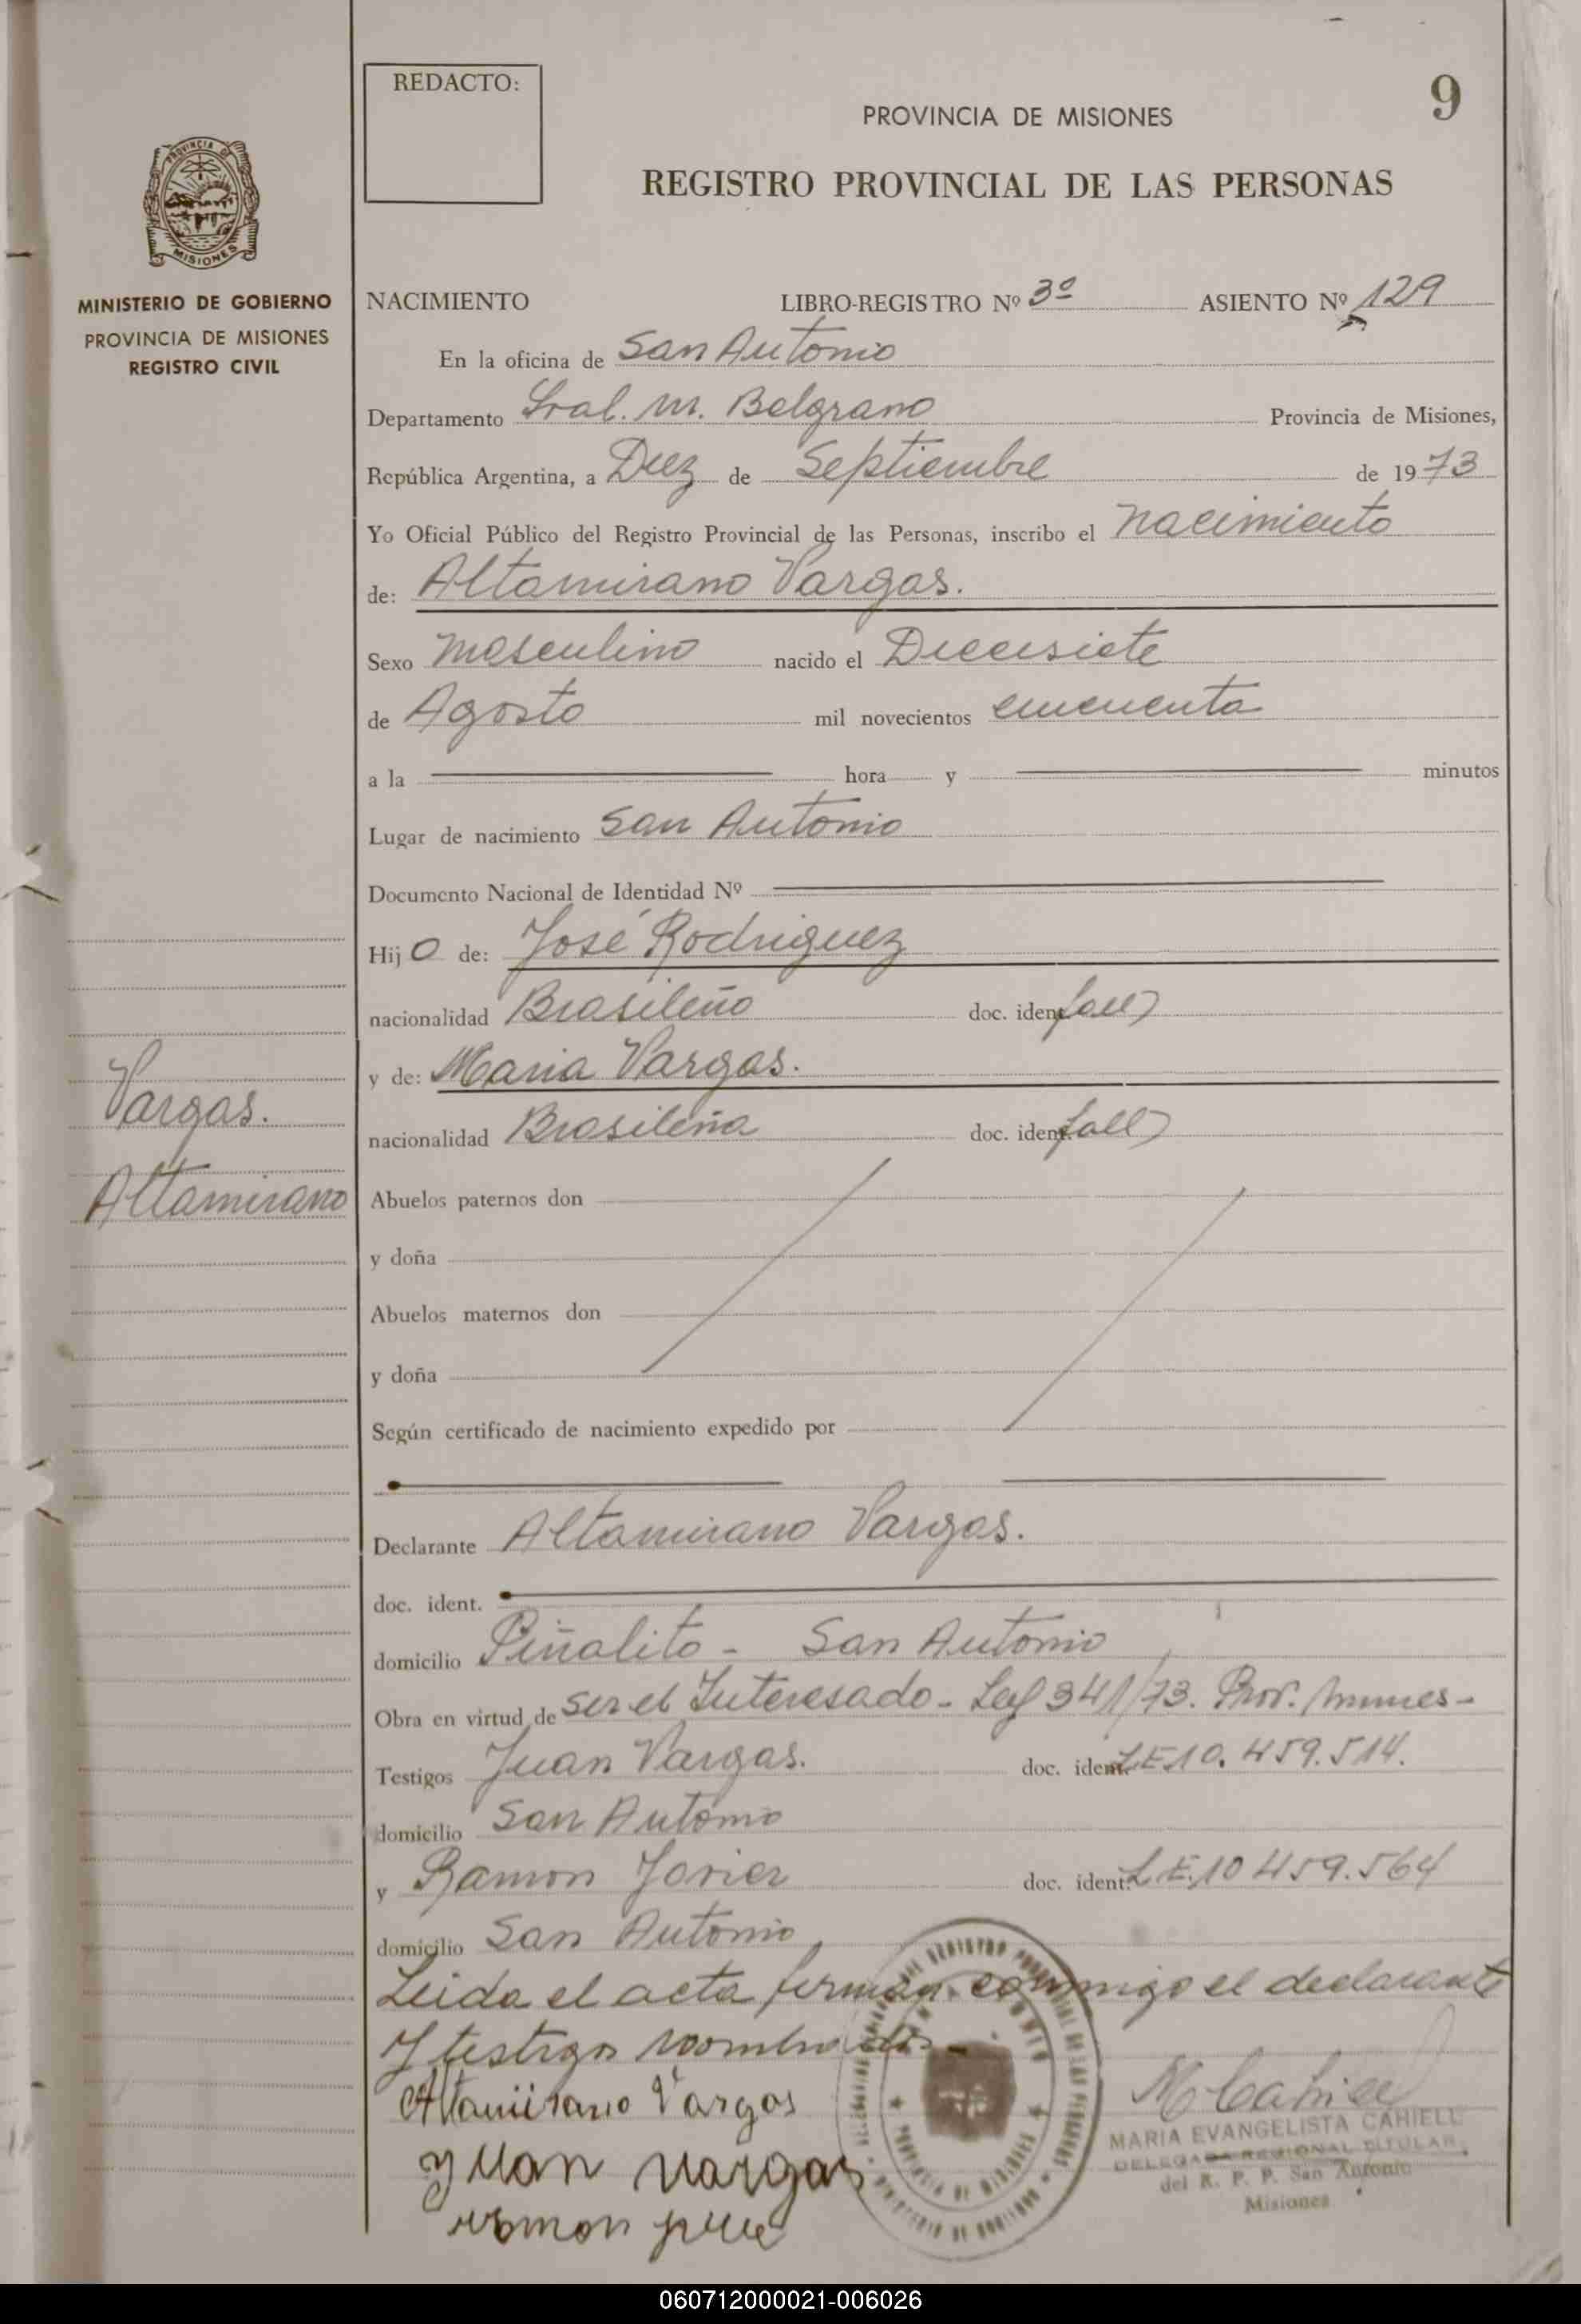 REDACTO:
9
PROVINCIA DE MISIONES
REGISTRO PROVINCIAL DE LAS PERSONAS
PROVINCIA DE
MISIONES
MINISTERIO DE GOBIERNO
PROVINCIA DE MISIONES
REGISTRO CIVIL
NACIMIENTO LIBRO-REGISTRO Nº 3º ASIENTO Nº 129
En la oficina de San Antonio
Departamento Gral. M. Belgrano Provincia de Misiones,
República Argentina, a Diez de Septiembre de 1973
Yo Oficial Público del Registro Provincial de las Personas, inscribo el nacimiento
de: Altamirano Vargas.
Sexo masculino nacido el Diecisiete
de Agosto mil novecientos cincuenta
a la hora y minutos
Lugar de nacimiento San Antonio
Documento Nacional de Identidad Nº
Hijo de: José Rodriguez
nacionalidad Brasileño doc. ident.
y de: Maria Vargas.
nacionalidad Brasileña doc. ident.
Vargas.
Altamirano
Abuelos paternos don
y doña
Abuelos maternos don
y doña
Según certificado de nacimiento expedido por
Declarante Altamirano Vargas.
doc. ident.
domicilio Piñalito - San Antonio
Obra en virtud de ser el Interesado - Ley 341/73.
Testigos Juan Vargas. doc. ident. L E 10.459.514.
domicilio San Antonio
y Ramon Javier doc. ident. L.E. 10 459.564
domicilio San Antonio
Leida el acta firman conmigo el declarante
y testigos nombrados -
Altamirano Vargas
Juan Vargas
ramon
MARIA EVANGELISTA CAHIELL
DELEGADA REGIONAL TITULAR
del R. P. P. San Antonio
Misiones
060712000021-006026